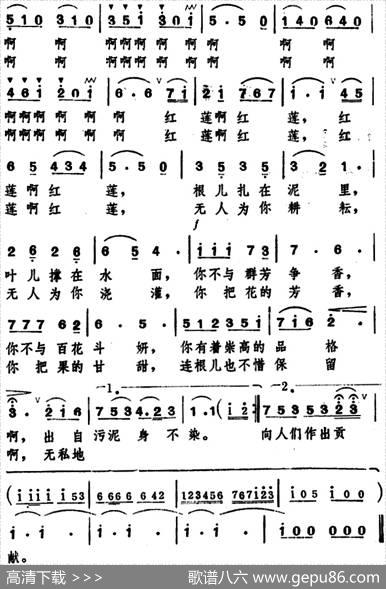 510 310 351 301 5·50 140640
啊 啊 啊啊啊 啊 啊 啊 啊
啊 啊 啊啊啊 啊 啊 啊 啊
461 201 6·67i 2i 767 i·i 45
啊啊啊 啊 啊 啊 红 莲啊红 莲, 红
啊啊啊 啊 啊 啊 红 莲啊红 莲, 红
65 434 5·50 3535 32 1·
莲啊红 莲, 根儿扎在 泥 里,
莲啊红 莲, 无人为你 耕 耘,
f
2626 654· iii73 7·6·
叶儿撑在 水 面, 你不与群芳 争 香,
无人为你 浇 灌, 你 把花的 芳 香,
77762 6·5· 512351 7i62
你不与百花 斗 妍, 你有着崇高的 品 格
你 把果的 甘 甜, 连根儿也不惜 保 留
1. 2.
3· 2i6 7534·23 1·1(i2:‖ 753523
啊, 出自 污泥 身 不 染。 向人们作出贡
啊, 无私地
(iiiii53 6666642 123456 767i23 i05 i00)
i·i· i·i· i·i· i00000‖
献。
高清下载 >>> 歌谱八六 www.gepu86.com